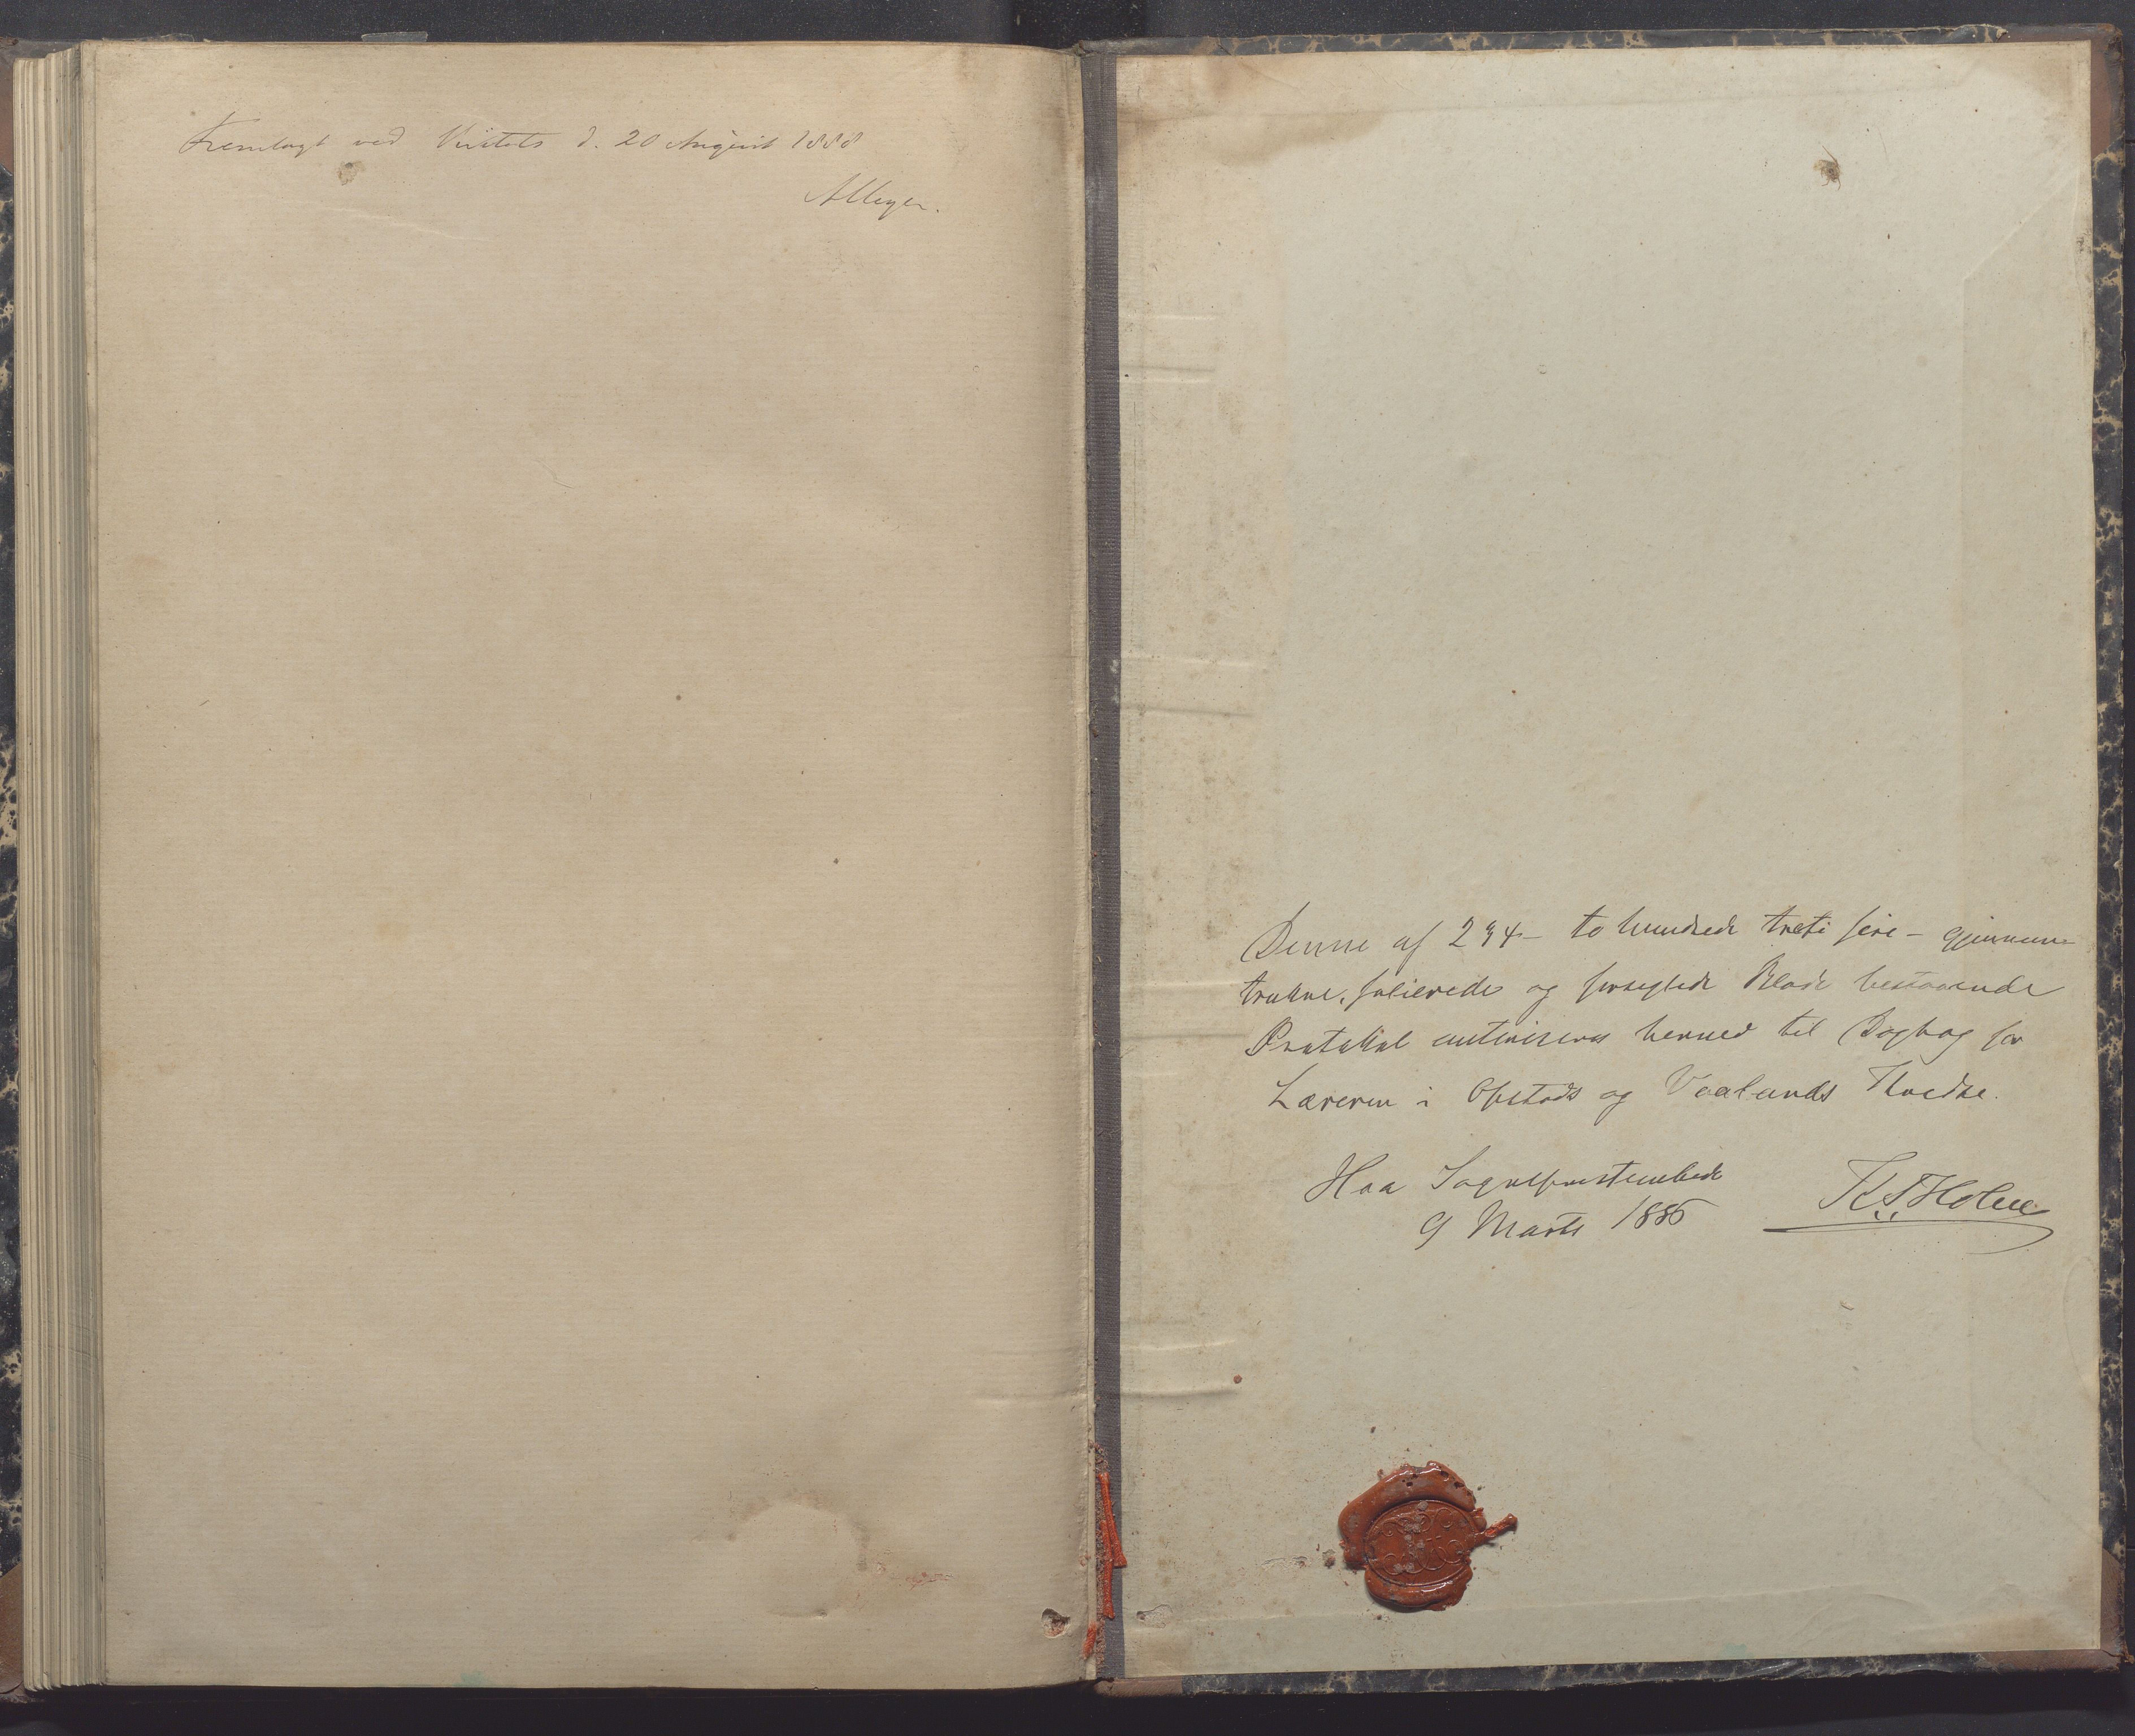 Fremlagt ved Visitats d. 20 August 1888
AMeyer.
Denne af 234 - to hundrede treti fire - gjennem-
trukne, folierede og forseglede Blade bestaaende
Protokol autoriseres herved til Dagbog for
Læreren i Opstads og Vaalands Kredse.
Haa Sogneprestembede
9 Marts 1886
Holm